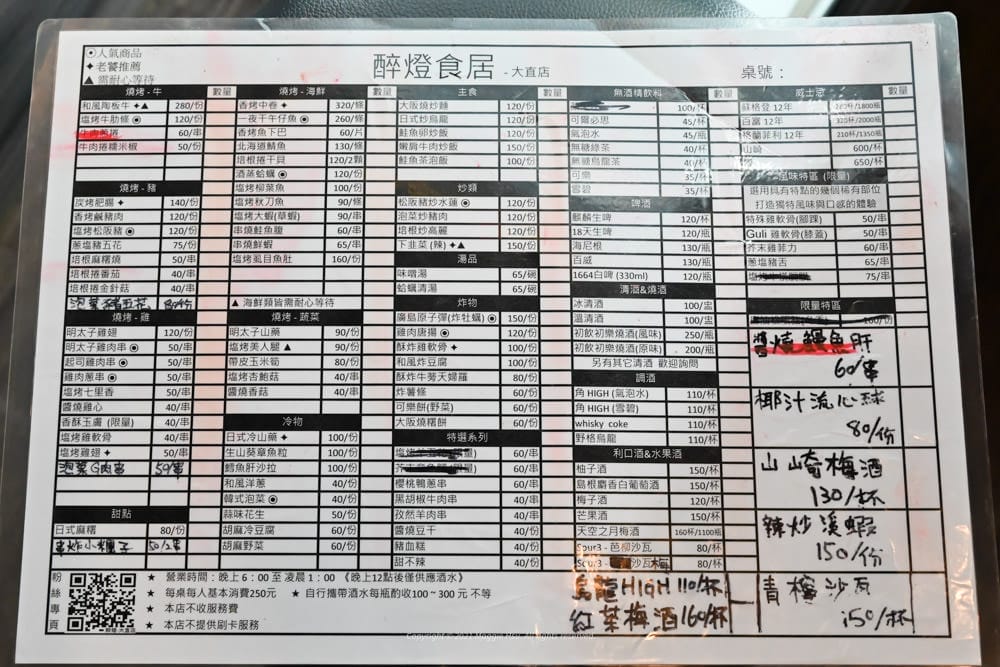 ⊙人氣商品
✦老饕推薦
▲需耐心等待
醉燈食居 - 大直店
桌號：
燒烤 - 牛 數量
和風陶板牛✦▲ 280/份
塩烤牛肋條⊙ 120/份
牛肉蔥捲 60/串
牛肉捲糯米椒 50/份
燒烤 - 豬
炭烤肥腸✦ 140/份
香烤鹹豬肉 120/份
塩烤松阪豬⊙ 120/份
蔥塩豬五花 75/份
培根麻糬燒 50/串
培根捲番茄 40/串
培根捲金針菇 40/串
泡菜豬五花 80/份
燒烤 - 雞
明太子雞翅 120/份
明太子雞肉串⊙ 50/串
起司雞肉串⊙ 50/串
雞肉蔥串⊙ 50/串
塩烤七里香 50/串
醬燒雞心 40/串
香酥玉膚 (限量) 40/串
塩烤雞軟骨 40/串
塩烤雞翅✦ 50/串
泡菜G肉串 50/串
甜點
日式麻糬 80/份
串炸小粿子
燒烤 - 海鮮 數量
香烤中卷✦ 320/條
一夜干午仔魚⊙ 260/條
香烤魚下巴 60/片
北海道鯖魚 130/條
培根捲干貝 120/2顆
酒蒸蛤蠣⊙ 120/份
塩烤柳葉魚 100/份
塩烤秋刀魚 90/條
塩烤大蝦(草蝦) 90/串
串燒鮭魚腹 60/串
串燒鮮蝦 65/串
塩烤虱目魚肚 160/份
▲海鮮類皆需耐心等待
燒烤 - 蔬菜
明太子山藥 90/份
塩烤美人腿▲ 90/份
帶皮玉米筍 80/份
塩烤杏鮑菇 40/串
醬燒香菇 40/串
冷物
日式冷山藥✦ 100/份
生山葵章魚粒 100/份
鱈魚肝沙拉 100/份
和風洋蔥 40/份
韓式泡菜⊙ 40/份
蒜味花生 50/份
胡麻冷豆腐 60/份
胡麻野菜 60/份
主食 數量
大阪燒炒麵 120/份
日式炒烏龍 120/份
鮭魚卵炒飯 120/份
嫩肩牛肉炒飯 150/份
鮭魚茶泡飯 100/份
炒類
松阪豬炒水蓮⊙ 150/份
泡菜炒豬肉 120/份
培根炒高麗 120/份
下韭菜 (辣)✦▲ 150/份
湯品
味噌湯 65/碗
蛤蠣清湯 65/碗
炸物
廣島原子彈(炸牡蠣)⊙ 150/份
雞肉唐揚⊙ 120/份
酥炸雞軟骨✦ 100/份
和風炸豆腐 100/份
酥炸牛蒡天婦羅 80/份
炸薯條 60/份
可樂餅(野菜) 60/份
大阪燒糯餅 60/份
特選系列
60/串
60/串
櫻桃鴨蔥串 60/串
黑胡椒牛肉串 40/串
孜然羊肉串 40/串
醬燒豆干 40/份
豬血糕 40/份
甜不辣 40/份
無酒精飲料 數量
100/杯
可爾必思 45/杯
氣泡水 45/瓶
無糖綠茶 40/杯
無糖烏龍茶 40/杯
可樂 35/杯
雪碧 35/杯
啤酒
麒麟生啤 120/杯
18天生啤 120/瓶
海尼根 130/瓶
百威 130/瓶
1664白啤 (330ml) 120/瓶
清酒&燒酒
冰清酒 100/盅
溫清酒 100/盅
初飲初樂燒酒(風味) 250/瓶
初飲初樂燒酒(原味) 200/瓶
另有其它清酒 歡迎詢問
調酒
角 HIGH (氣泡水) 110/杯
角 HIGH (雪碧) 110/杯
whisky coke 110/杯
野格烏龍 110/杯
利口酒&水果酒
柚子酒 150/杯
島根麝香白葡萄酒 150/杯
梅子酒 120/杯
芒果酒 150/杯
天空之月梅酒 160杯/1100瓶
Sour3 - 芭柳沙瓦 80/杯
Sour3 - 沙瓦梅 80/杯
烏龍HIGH 110/杯
紅茶梅酒160杯
威士忌 數量
蘇格登 12年 280杯/1800瓶
百富 12年 320杯/2000瓶
格蘭菲利 12年 210杯/1350瓶
山崎 600/杯
650/杯
風味特區 (限量)
選用具有特點的幾個稀有部位
打造獨特風味與口感的體驗
特殊雞軟骨(腳踝) 50/串
Guli 雞軟骨(膝蓋) 50/串
芥末雞菲力 60/串
蔥塩豬舌 65/串
75/串
限量特區
100/份
醬燒鰻魚肝
60/串
椰汁流心球
80/份
山崎梅酒
130/杯
辣炒溪蝦
150/份
青檸沙瓦
150/杯
粉絲專頁
醉燈-大直店
★ 營業時間：晚上 6：00 至 凌晨 1：00 《晚上12點後僅供應酒水》
★ 每桌每人基本消費250元 ★ 自行攜帶酒水每瓶酌收100 ~ 300 元 不等
★ 本店不收服務費
★ 本店不提供刷卡服務